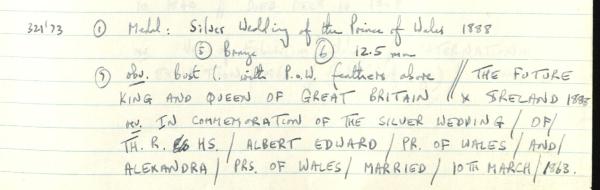 321'73 ① Medal: Silver Wedding of the Prince of Wales 1888
⑤ Bronze ⑥ 12.5 mm
⑦ obv. bust l. with P.o.W. feathers above // THE FUTURE
KING AND QUEEN OF GREAT BRITAIN & IRELAND 1888
rev. IN COMMEMORATION OF THE SILVER WEDDING / OF /
TH. R. HS. / ALBERT EDWARD / PR. OF WALES / AND /
ALEXANDRA / PRS. OF WALES / MARRIED / 10TH MARCH / 1863.